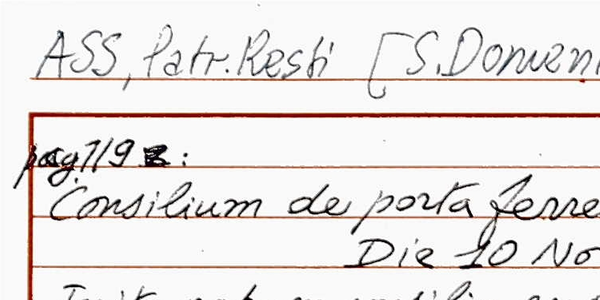 ASS, Patr. Resti [S. Domeni
pag. 119 :
Consilium de porta ferre
Die 10 No